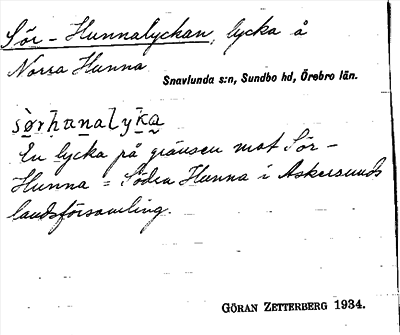 Sör-Hunnalyckan, lycka å
Norra Hunna
Snavlunda s:n, Sundbo hd, Örebro län.
sø̀rhunalyka
En lycka på gränsen mot Sör-
Hunna = Södra Hunna i Askersunds
landsförsamling.
GÖRAN ZETTERBERG 1934.